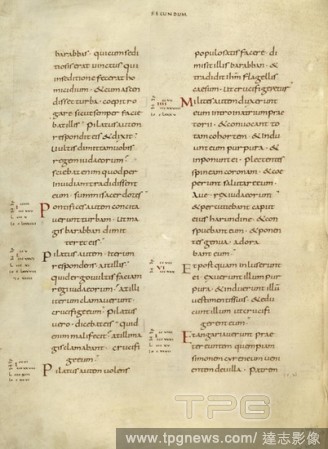 SECUNDUM
barabbas · qui cum sedi
tiosis erat vinctus qui
in seditione fecerat ho
micidium · & cum ascen
disset turba · coepit ro
gare sicut semper faciebat
illis · Pilatus autem
respondit eis & dixit ·
Vultis dimittam vobis
regem iudaeorum ·
sciebat enim quod per
invidiam tradidissent
eum · summi sacerdotes ·
Pontifices autem concita
verunt turbam · ut ma
gis barabban dimit
teret eis ·
Pilatus autem · iterum
respondens ait illis ·
Quid ergo vultis faciam
regi iudaeorum · at illi
iterum clamaverunt ·
crucifige eum · Pilatus
vero · dicebat eis · quid
enim mali fecit · at illi ma
gis clamabant · crucifi
ge eum ·
Pilatus autem volens
populo satis facere · di
misit illis barabban · &
tradidit ihm flagellis
caesum · ut crucifigeretur ·
Milites autem duxerunt
eum intro in atrium prae
torii · & convocant to
tam cohortem · & indu
unt eum purpura · &
inponunt ei · plectentes
spineam coronam · & coe
perunt salutare eum ·
Ave rex iudaeorum ·
& percutiebant caput
eius harundine · & con
spuebant eum · & ponen
tes genua · adora
bant eum ·
Et postquam inluserunt
ei · exuerunt illum pur
pura · & induerunt illum
vestimentis suis · & edu
cunt illum ut crucifi
gerent eum ·
Et angariaverunt prae
tereuntem quempiam
simonem cyreneum veni
entem de villa · Patrem
TPG
www.tpgnews.com/ 達志影像